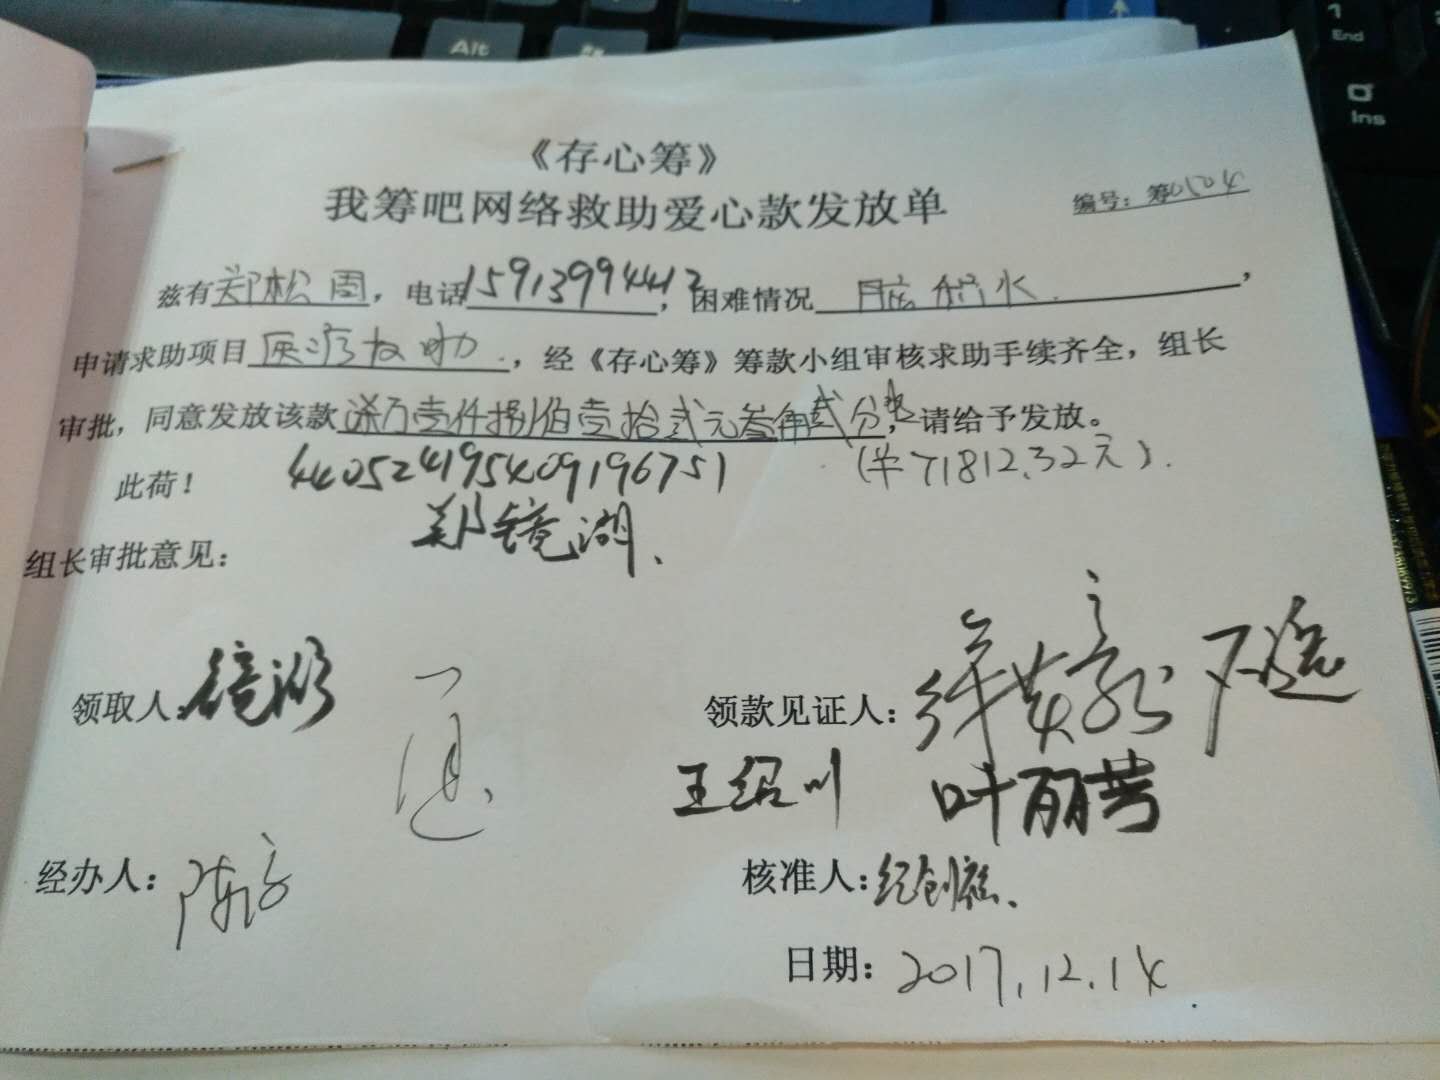 《存心筹》
我筹吧网络救助爱心款发放单
编号：筹01504
兹有郑松周，电话15913994412，困难情况脑积水，
申请求助项目医疗救助，经《存心筹》筹款小组审核求助手续齐全，组长
审批，同意发放该款柒万壹仟捌佰壹拾贰元叁角贰分，请给予发放。
此荷！ 440524195409196751 （￥71812.32元）.
郑镜湖.
组长审批意见：
领取人： 镜湖 领款见证人：
王绍川 叶丽芳
经办人： 核准人：
日期：2017.12.14
Alt
1
End
Ins